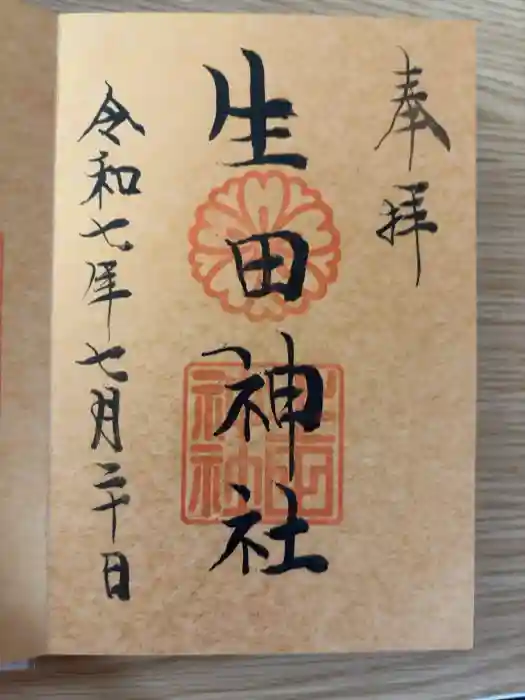 奉拝
生田神社
生田神社
令和七年七月二十日